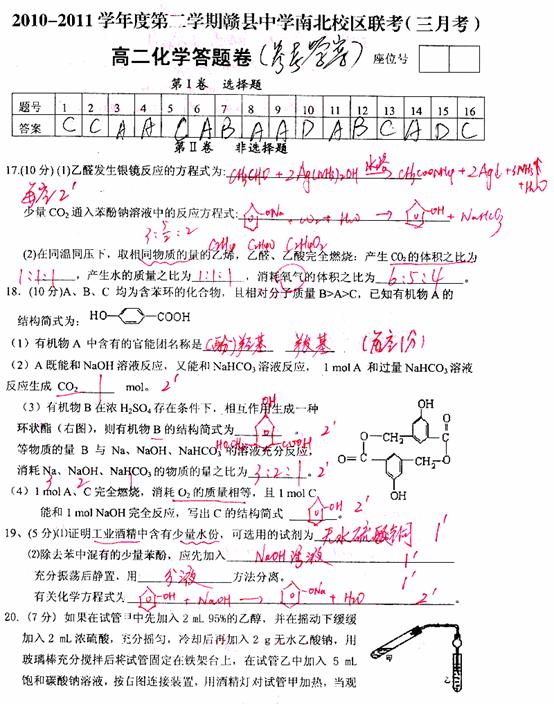 2010-2011学年度第二学期赣县中学南北校区联考(三月考)
高二化学答题卷(参考答案) 座位号
第Ⅰ卷 选择题
题号 1 2 3 4 5 6 7 8 9 10 11 12 13 14 15 16
答案 C C A A C A B A A D A B C A D C
第Ⅱ卷 非选择题
17.(10分)(1)乙醛发生银镜反应的方程式为: CH3CHO + 2Ag(NH3)2OH 水浴 CH3COONH4 + 2Ag↓ + 3NH3↑ + H2O
每空2'
少量CO2通入苯酚钠溶液中的反应方程式: -ONa + CO2 + H2O → -OH + NaHCO3
C2H4 C2H4O C2H4O2
(2)在同温同压下,取相同物质的量的乙烯,乙醛、乙酸完全燃烧:产生CO2的体积之比为
1:1:1,产生水的质量之比为 1:1:1,消耗氧气的体积之比为 6:5:4。
18.(10分)A、B、C 均为含苯环的化合物,且相对分子质量B>A>C,已知有机物A的
结构简式为: HO- -COOH
(1)有机物A中含有的官能团名称是 (酚)羟基 羧基 (每空1分)
(2)A既能和NaOH溶液反应,又能和NaHCO3溶液反应, 1 mol A 和过量NaHCO3溶液
反应生成 CO2 1 mol。 2'
(3)有机物B在浓H2SO4存在条件下,相互作用生成一种
环状酯(右图),则有机物B的结构简式为 OH HOCH2 COOH 。 2'
等物质的量 B 与 Na、NaOH、NaHCO3的溶液充分反应,
消耗Na、NaOH、NaHCO3的物质的量之比为 3:2:1。 2'
3 2 1
(4)1 mol A、C完全燃烧,消耗O2的质量相等,且1 mol C
能和1 mol NaOH完全反应,写出C的结构简式 -OH 。 2'
OH O O-CH2 C C CH2-O O OH
19、(5分)⑴证明工业酒精中含有少量水份,可选用的试剂为 无水硫酸铜 1'
⑵除去苯中混有的少量苯酚,应先加入 NaOH溶液 1'
充分振荡后静置,用 分液 方法分离。 1'
有关化学方程式为 -OH + NaOH → -ONa + H2O 。 2'
20.(7分)如果在试管甲中先加入2 mL 95%的乙醇,并在摇动下缓缓
加入2 mL浓硫酸,充分摇匀,冷却后再加入2 g无水乙酸钠,用
玻璃棒充分搅拌后将试管固定在铁架台上,在试管乙中加入 5 mL
饱和碳酸钠溶液,按右图连接装置,用酒精灯对试管甲加热,当观
甲 乙